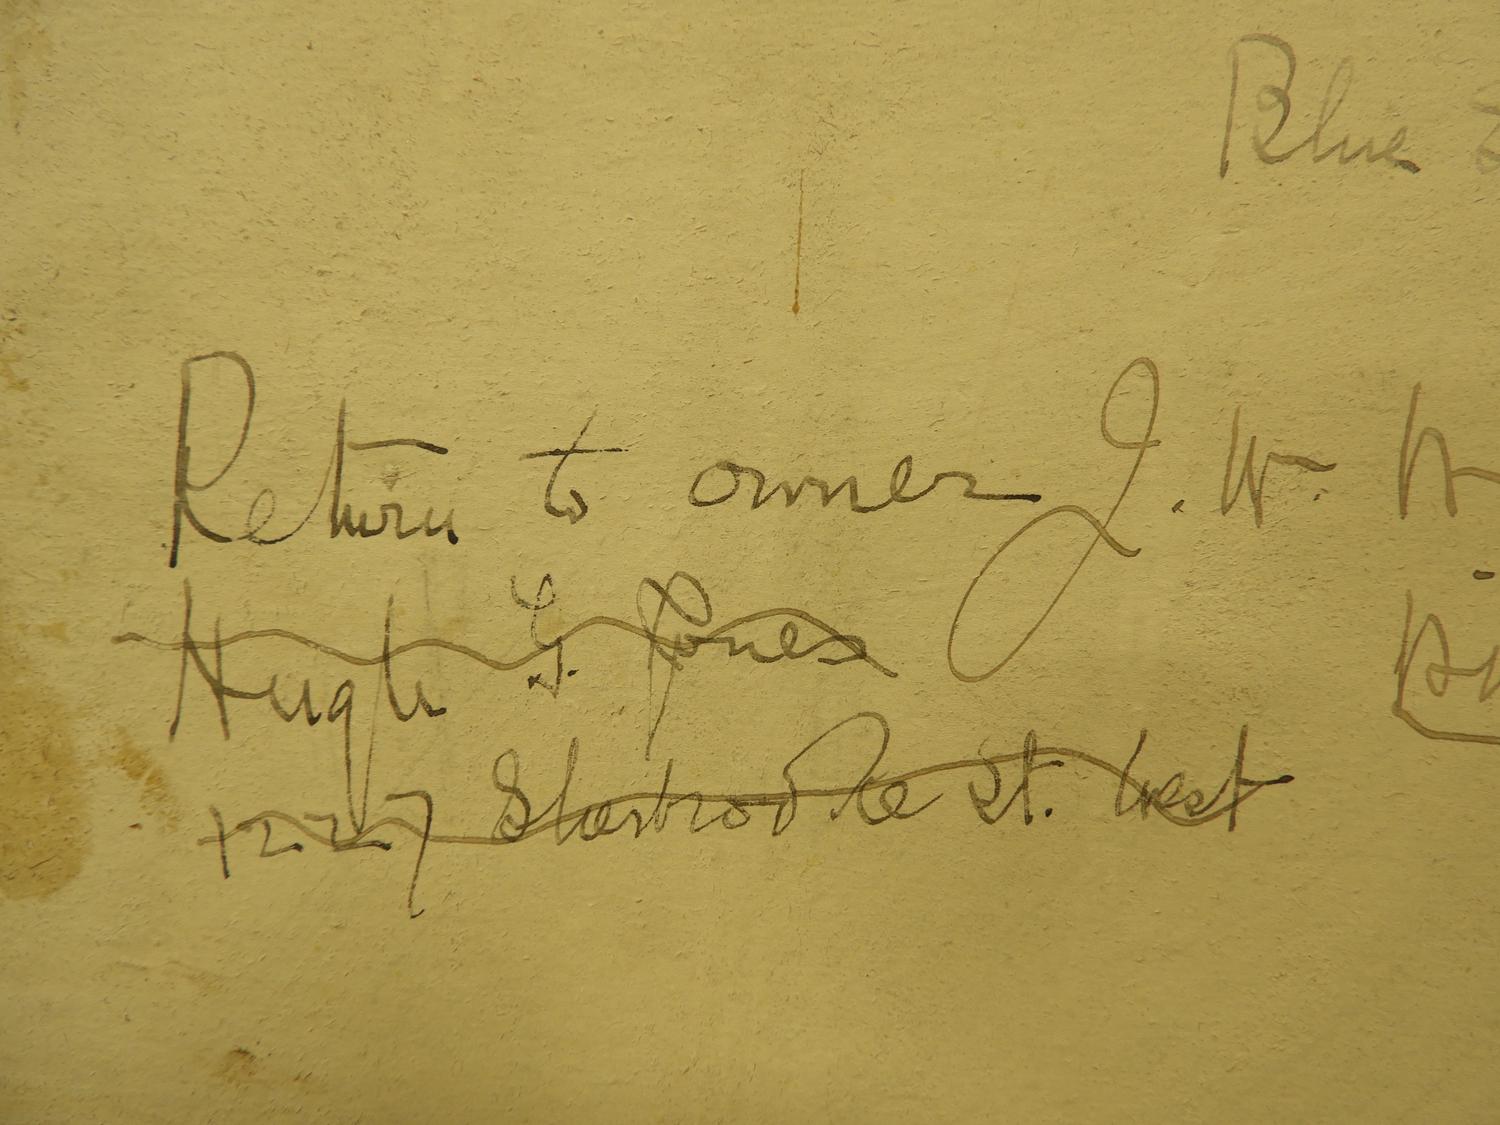 Blue
Return to owner J. W.
Hugh G. Jones
1227 Sherbrooke St. West